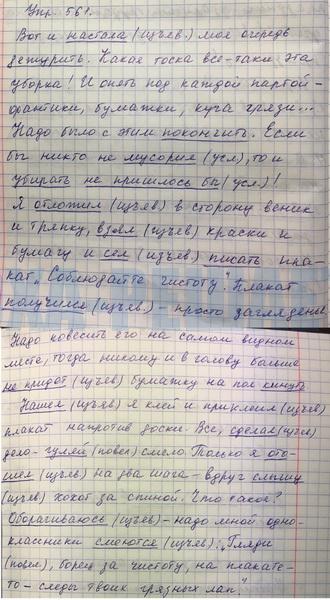 Упр. 561.
Вот и настала (изъяв.) моя очередь
дежурить. Какая тоска все-таки эта
уборка! И опять под каждой партой -
фантики, бумажки, куча грязи...
Надо было с этим покончить. Если
бы никто не мусорил (усл), то и
убирать не пришлось бы (усл)!
Я отложил (изъяв) в сторону веник
и тряпку, взял (изъяв) краски и
бумагу и сел (изъяв.) писать пла-
кат „Соблюдайте чистоту". Плакат
получился (изъяв.) - просто загляденье
Надо повесить его на самом видном
месте, тогда никому и в голову больше
не придёт (изъяв) бумажку на пол кинуть
Нашел (изъяв) я клей и приклеил (изъяв)
плакат напротив доски. Все, сделал (изъяв)
дело - гуляй (повел) смело. Только я ото-
шел (изъяв) на два шага - вдруг слышу
(изъяв) хохот за спиной. Что такое?
Оборачиваюсь (изъяв) - надо мной одно-
классники смеются (изъяв): „Гляди
(повел), борец за чистоту, на плакате-
то - следы твоих грязных лап."